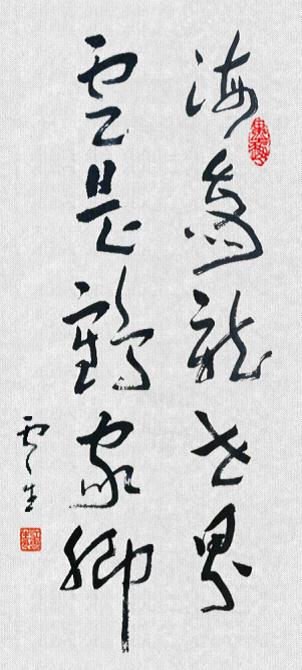 海為龍世界
雲是鶴家鄉
雲生